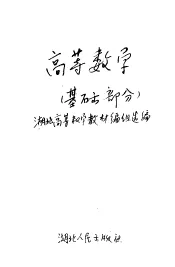 高等数学
(基础部分)
湖北高等数学教材编组选编
湖北人民出版社